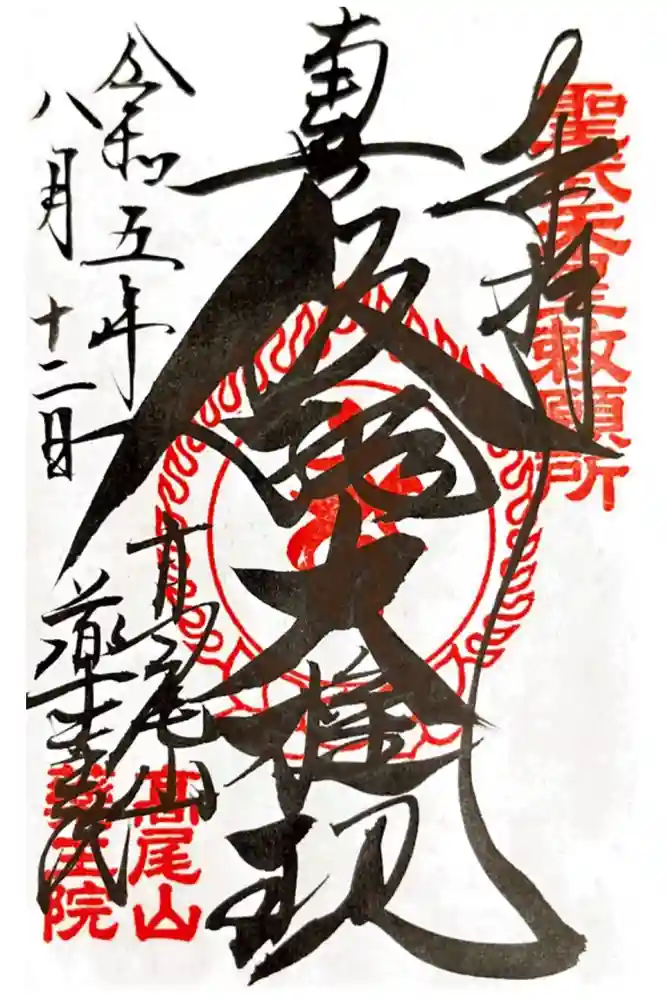 聖武天皇勅願所
奉拝
飯縄大権現
令和五年
八月十二日
高尾山
薬王院
高尾山
薬王院